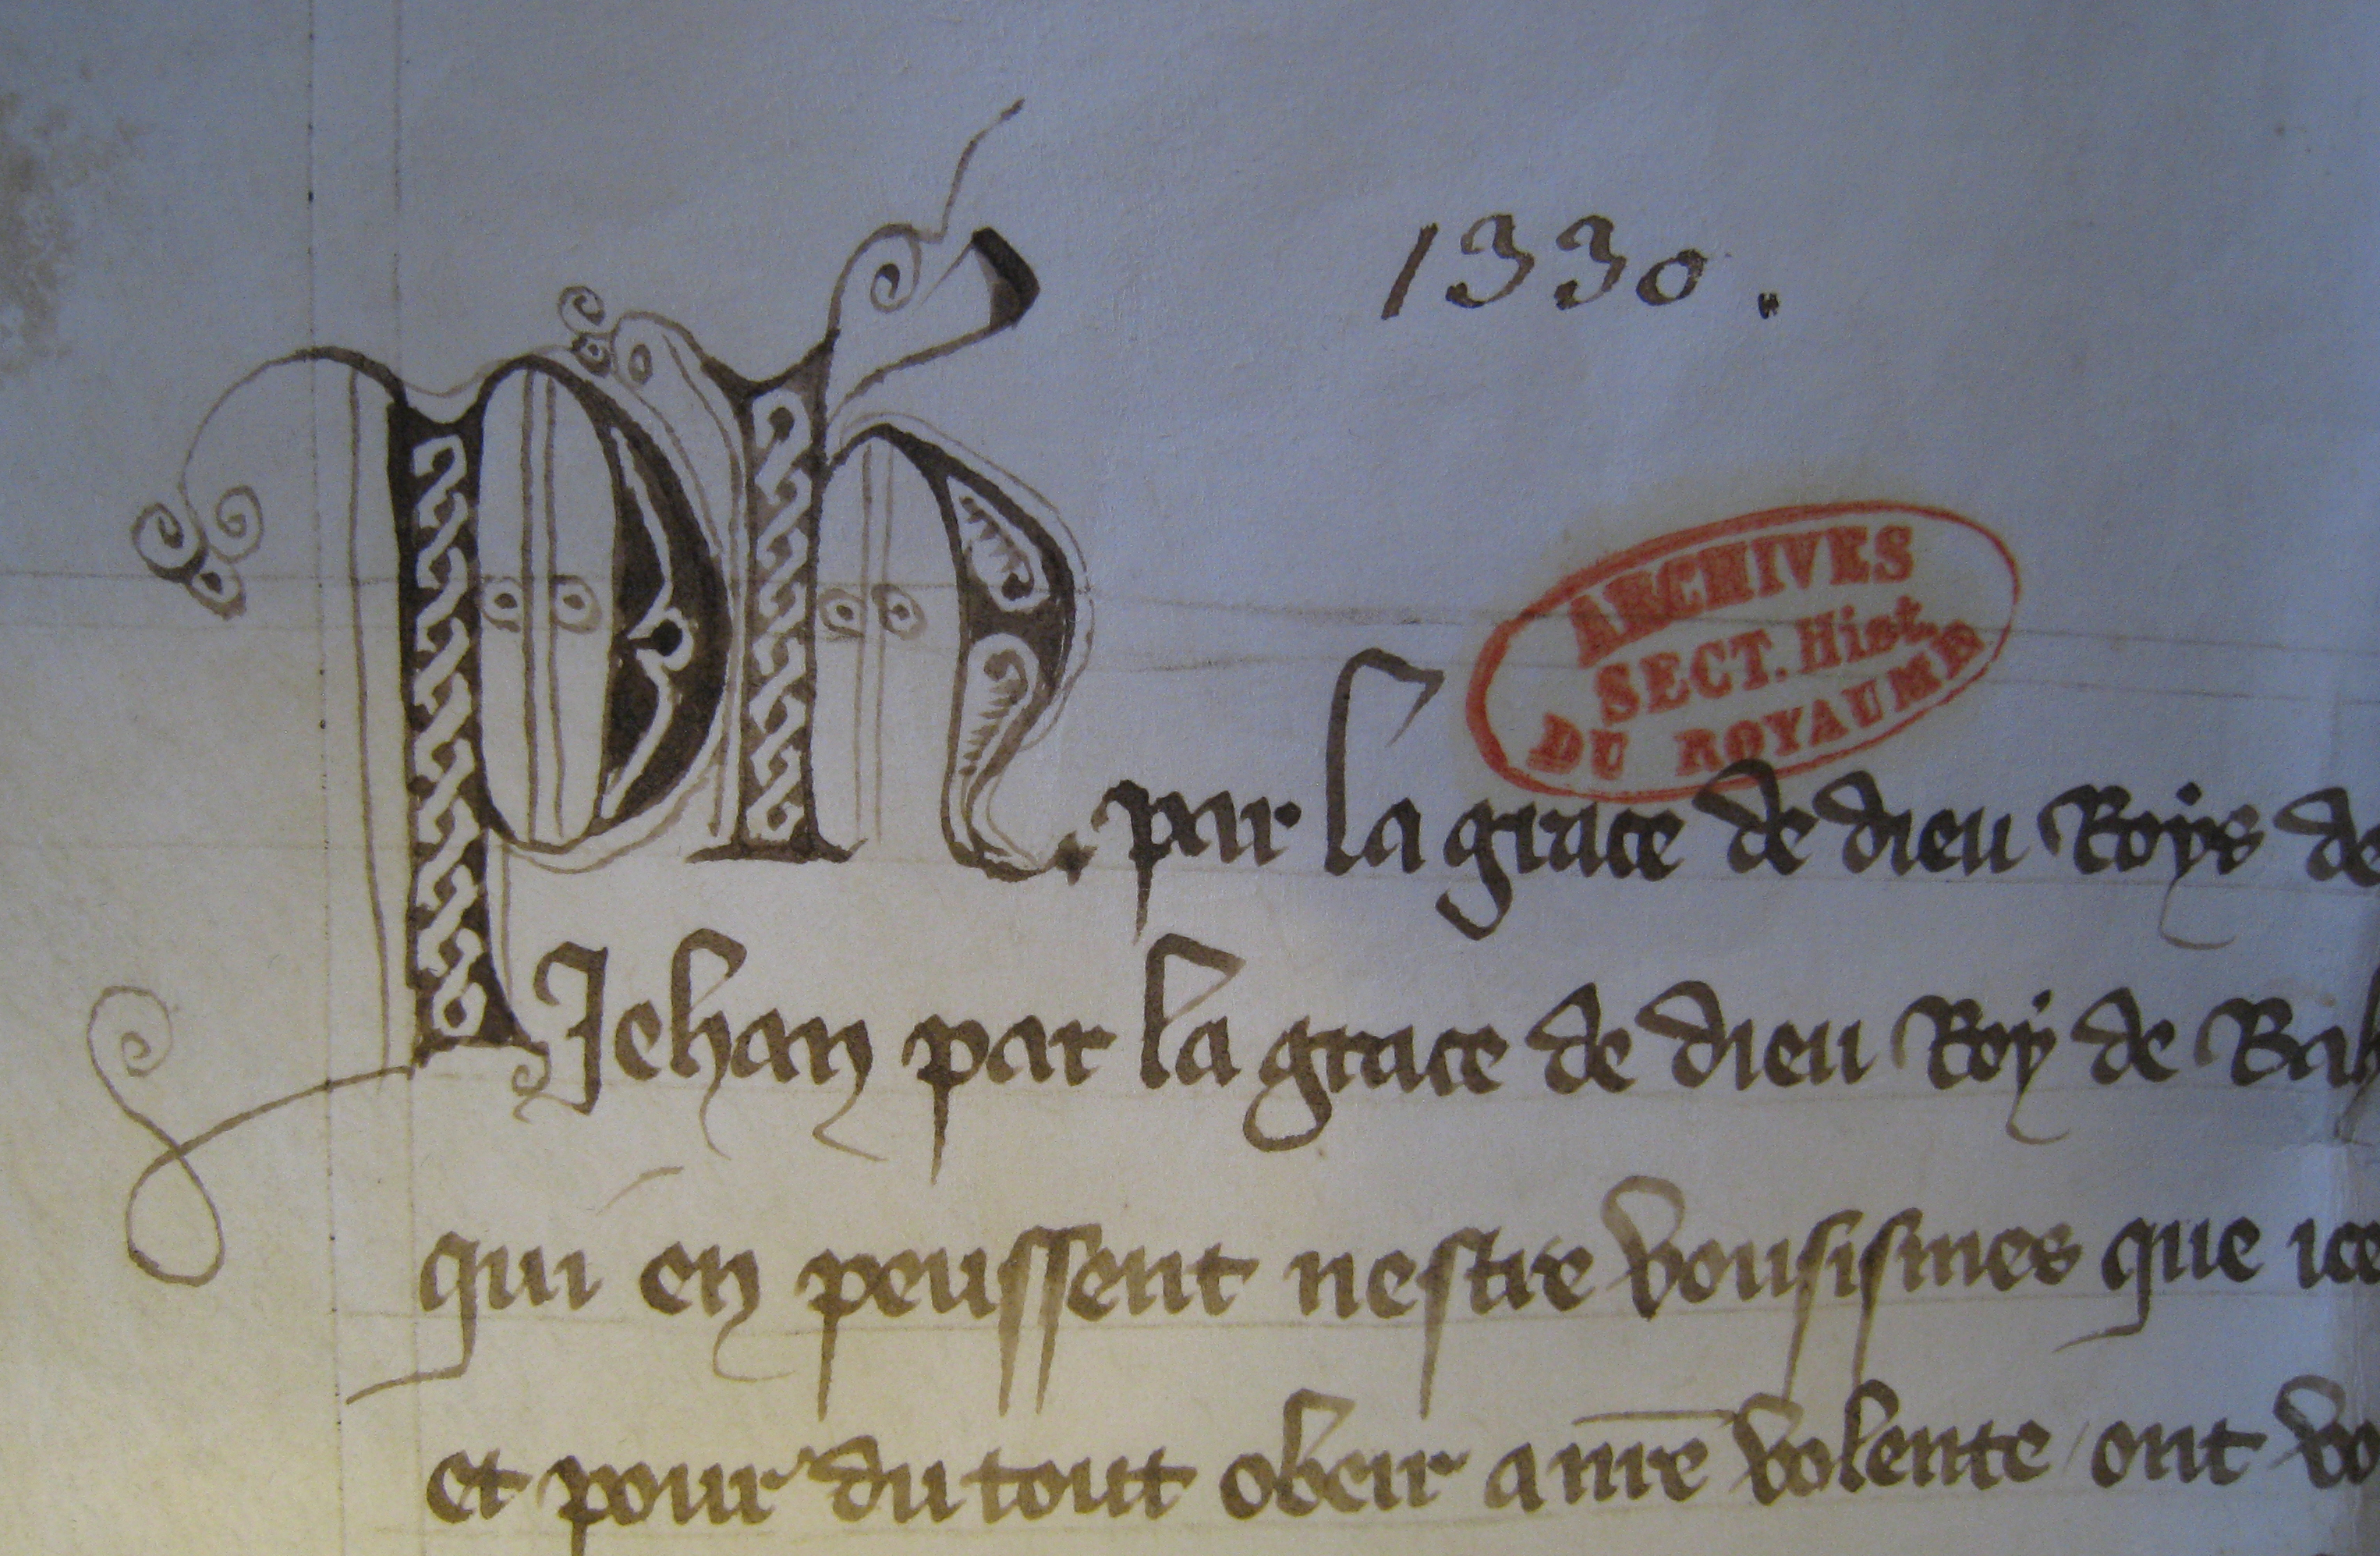 1330.
ARCHIVES
SECT. Hist.
DU ROYAUME
Ph. par la grace de dieu Roys de
Jehan par la grace de dieu Roy de Bah
qui en peussent nestre vousismes que ice
et pour du tout obeir a nre volente / ont vo